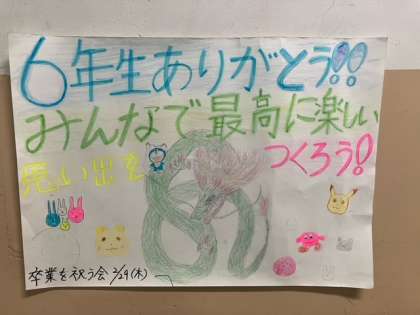 6年生ありがとう!!
みんなで最高に楽しい
思い出を つくろう!
卒業を祝う会 2/29(木)